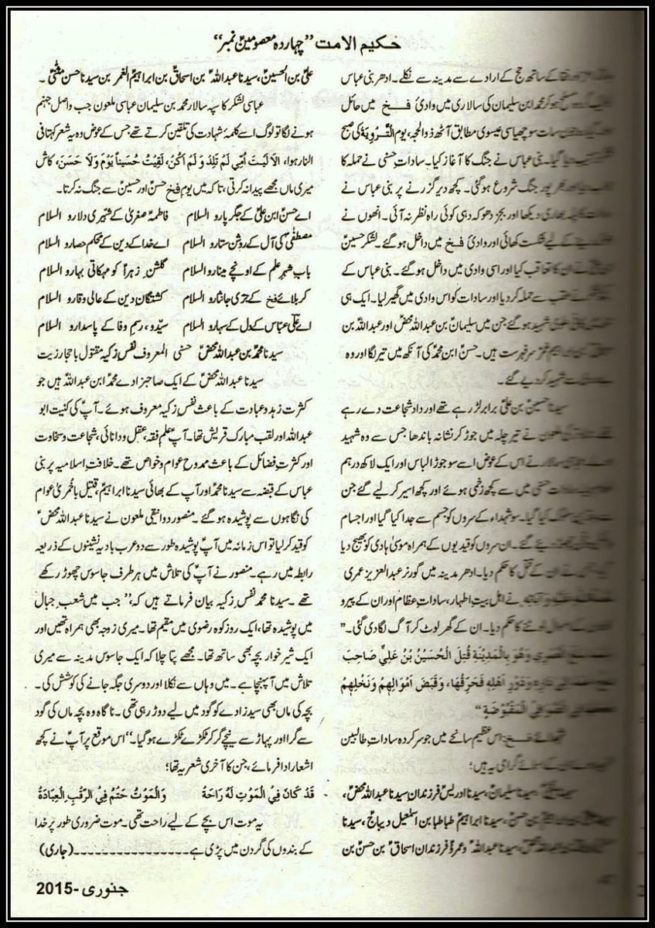 حکیم الامت "چہاردہ معصومینؑ نمبر"
کے ساتھ حج کے ارادے سے مدینہ سے نکلے۔ ادھر بنی عباس
مسلح ہو کر محمد ابن سلیمان کی سالاری میں وادیٔ فخ میں حائل
سات سو چھیاسی عیسوی مطابق آٹھ ذوالحجہ، یوم الترویۃ کی صبح
گیا۔ بنی عباس نے جنگ کا آغاز کیا۔ سادات حسنی نے حملہ کا
بھر پور جنگ شروع ہوگئی۔ کچھ دیر گزرنے پر بنی عباس نے
بھاری دیکھا اور بجز دھوکہ دہی کوئی راہ نظر نہ آئی۔ انھوں نے
کے لیے شکست کھائی اور وادی فخ میں داخل ہو گئے۔ لشکر حسینؑ
نے ان کا تعاقب کیا اور اسی وادی میں داخل ہو گئے۔ بنی عباس کے
عقب سے حملہ کر دیا اور سادات کو اس وادی میں گھیر لیا۔ ایک ہی
شہید ہو گئے جن میں سلیمانؑ بن عبداللہ محضؑ اور عبداللہ بن
سرفہرست ہیں۔ حسنؑ ابن محمدؑ کی آنکھ میں تیر لگا اور وہ
شہید کر دیے گئے۔
سیدنا حسینؑ بن علیؑ برابر لڑ رہے تھے اور داد شجاعت دے رہے
ملعون نے تیر چلہ میں جوڑ کر نشانہ باندھا جس سے وہ شہید
سالار نے اس کے عوض اسے سو جوڑا لباس اور ایک لاکھ درہم
سادات حسنی میں سے کچھ زخمی ہوئے اور کچھ اسیر کر لیے گئے جن
گیا۔ سو شہداء کے سروں کو جسم سے جدا کیا گیا اور اجسام
گئے۔ ان سروں کو قیدیوں کے ہمراہ موسیٰ ہادی کو بھیج دیا
نے ان کے قتل کا حکم دیا۔ ادھر مدینہ میں گورنر عبدالعزیز عمری
نے اہل بیت اطہار، سادات عظام اور ان کے پیرو
کا حکم دیا۔ ان کے گھر لوٹ کر آگ لگا دی گئی۔"
العمری وَهُوَ بِالْمَدِيْنَةِ قَتْلَ الْحُسَيْنِ بْنِ عَلِيٍّ صَاحِبَ
وَدُوْرِ اَهْلِهِ فَحَرَّقَهَا، وَقَبَضَ اَمْوَالَهُمْ وَنَخْلَهُمْ
فِي الْمَقْبُوْضَةِ"
اس عظیم سانحے میں جو سرکردہ سادات طالبین
کے اسمائے گرامی یہ ہیں:
سیدنا سلیمانؑ، سیدنا ادریسؑ فرزندان سیدنا عبداللہ محضؑ،
بن حسنؑ، سیدنا ابراہیمؑ طباطبا بن اسمٰعیل دیباجؑ، سیدنا
سیدنا عبداللہؑ و عمرؑ فرزندان اسحاقؑ بن حسنؑ بن
علیؑ بن الحسینؑ، سیدنا عبداللہؑ بن اسحاقؑ بن ابراہیمؑ الغمر بن سیدنا حسن مثنیٰؑ۔
عباسی لشکر کا سپہ سالار محمد بن سلیمان عباسی ملعون جب واصل جہنم
ہونے لگا تو لوگ اسے کلمۂ شہادت کی تلقین کرتے تھے جس کے عوض وہ یہ شعر کہتا فی
النار ہوا، اَلَا لَيْتَ اُمِّيْ لَمْ تَلِدْ وَلَمْ اَكُنْ، لَقِيْتُ حُسَيْناً يَوْمَ وَلَا حَسَنَ، کاش
میری ماں مجھے پیدا نہ کرتی، تاکہ میں یوم فخ حسنؑ اور حسینؑ سے جنگ نہ کرتا۔
اے حسنؑ ابن علیؑ کے جگر پارو السلام    فاطمہؑ صغریٰ کے شہری دلارو السلام
مصطفیٰؐ کی آل کے روشن ستارو السلام    اے خدا کے دین کے محکم حصارو السلام
باب شہر علم کے اونچے مینارو السلام    گلشن زہراؑ کو مہکاتی بہارو السلام
کربلائے فخ کے جری جانثارو السلام    کشتگان دین کے عالی وقارو السلام
اے علیؑ عباسؑ کے دل کے سہارو السلام    سیدو، رسم وفا کے پاسدارو السلام
سیدنا محمدؑ بن عبداللہ محضؑ حسنی المعروف نفس زکیہ مقتول با حجار زیت
سیدنا عبداللہ محضؑ کے ایک صاحبزادے محمدؑ ابن عبداللہؑ ہیں جو
کثرت زہد و عبادت کے باعث نفس زکیہ معروف ہوئے۔ آپؑ کی کنیت ابو
عبداللہ اور لقب مبارک قریش تھا۔ آپؑ علم فقہ، عقل و دانائی، شجاعت و سخاوت
اور کثرت فضائل کے باعث ممدوح عوام و خواص تھے۔ خلافت اسلامیہ پر بنی
عباس کے قبضہ سے سیدنا محمدؑ اور آپ کے بھائی سیدنا ابراہیمؑ، قتیل باخمریٰ عوام
کی نگاہوں سے پوشیدہ ہو گئے۔ منصور دوانقی ملعون نے سیدنا عبداللہ محضؑ
کو قید کر لیا تو اس زمانہ میں آپؑ پوشیدہ طور سے دو عرب بادیہ نشینوں کے ذریعہ
رابطہ میں رہے۔ منصور نے آپؑ کی تلاش میں ہر طرف جاسوس چھوڑ رکھے
تھے۔ سیدنا محمدؑ نفس زکیہ بیان فرماتے ہیں کہ، "جب میں شعب جبال
میں پوشیدہ تھا، ایک روز کوہ رضوی میں مقیم تھا۔ میری زوجہ بھی ہمراہ تھیں اور
ایک شیر خوار بچہ بھی ساتھ تھا۔ مجھے پتا چلا کہ ایک جاسوس مدینہ سے میری
تلاش میں آپہنچا ہے۔ میں وہاں سے نکلا اور دوسری جگہ جانے کی کوشش کی۔
بچہ کی ماں بھی سیدزادے کو گود میں لیے دوڑ رہی تھی۔ ناگاہ وہ بچہ ماں کی گود
سے گرا اور پہاڑ سے نیچے گر کر ٹکڑے ٹکڑے ہو گیا۔" اس موقع پر آپؑ نے کچھ
اشعار ادا فرمائے، جن کا آخری شعر یہ تھا؛
قَدْ كَانَ فِي الْمَوْتِ لَهُ رَاحَةٌ    وَالْمَوْتُ حَتْمٌ فِي الرَّقَبِ الْعِبَادَةُ
یہ موت اس بچے کے لیے راحت تھی۔ موت ضروری طور پر خدا
کے بندوں کی گردن میں پڑی ہے ۔۔۔۔۔۔۔۔۔۔ (جاری)
جنوری -2015